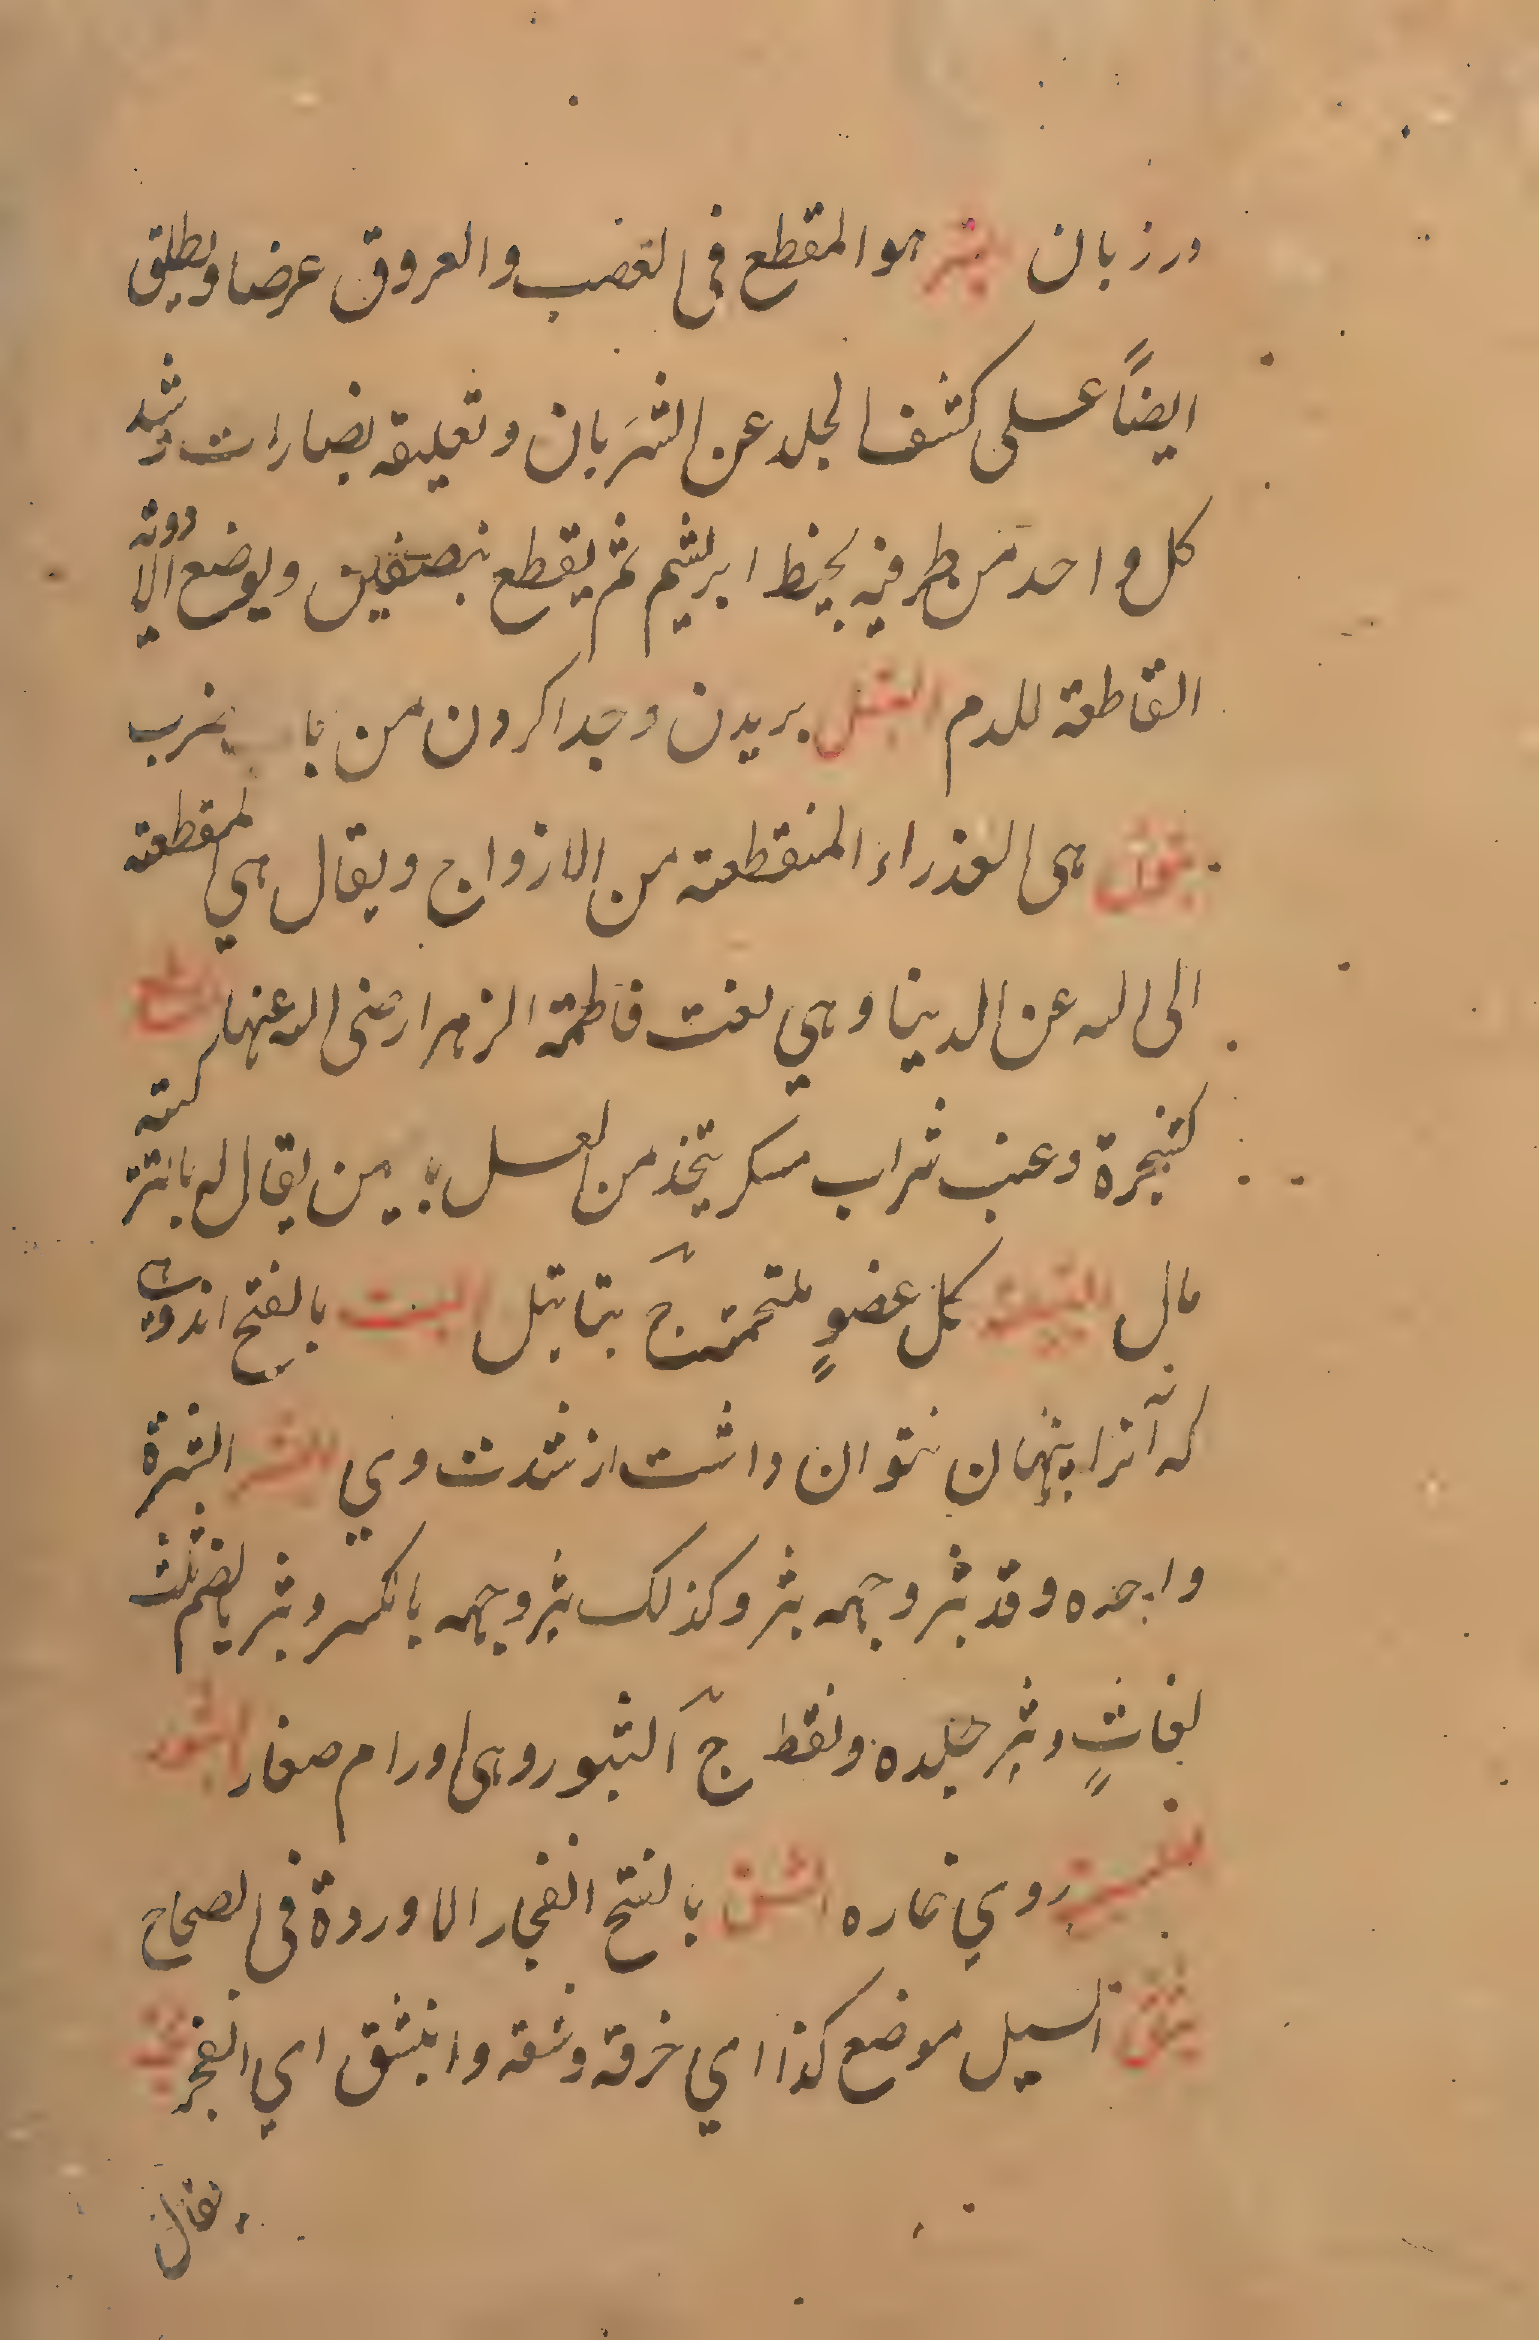 ورزبان بتر هو المقطع فی العضب والعروق عرضا ویطلق
ایضاً علی کشف الجلد عن الشریان وتعلیقه بصنارات وشد
کل واحد من طرفیه بخیط ابریشم ثم یقطع بنصفین ویوضع الادویه
القاطعة للدم البتل بریدن وجدا کردن من باب ضرب
بتول هی العذراء المنقطعة من الازواج ویقال هی المنقطعة
الی الله عن الدنیا وهی لغت فاطمة الزهرا رضی الله عنها البتع
وعنب شراب مسکر یتخذ من العسل یمن یقال له
مال کل عضو بتایل البث بالفتح اندوهی
که آنرا پنهان نتوان داشت از شدت وی البثر البثرة
واحده وقد بثر وجهه بثر وکذلک بثر وجهه بالکسر وبثر بالضم ثلث
لغاتٍ وبثر جلده ونفط ج البثور وهی اورام صغار البثور
روی البثق بالفتح انفجار الاوردة فی الصحاح
بثق السیل موضع کذا ای خرقه وشقه وانبثق ای انفجر
یقال